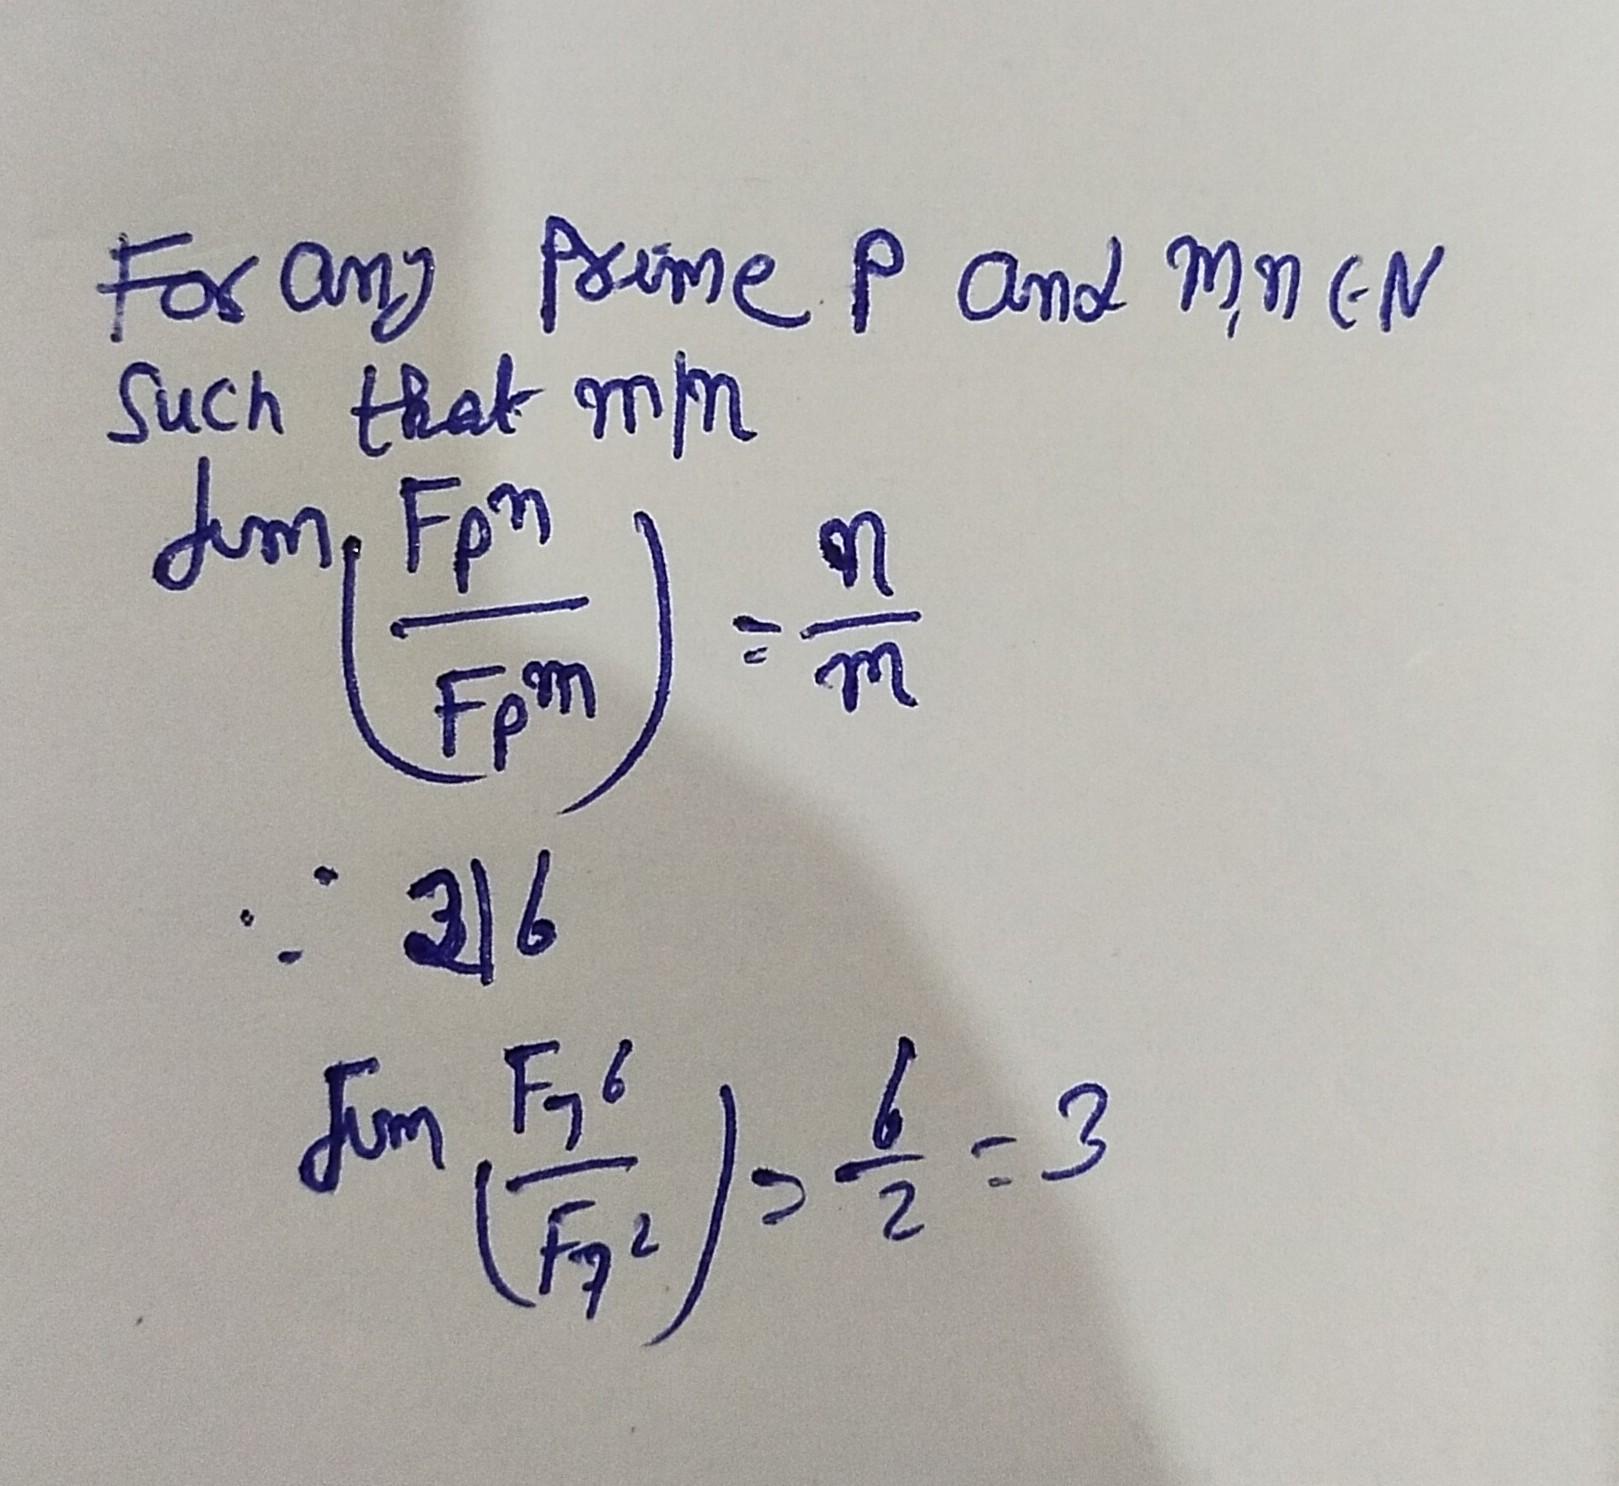 For any Prime P and m,n ∈ N
Such that m|n
dim (F_{p^n} / F_{p^m}) = n/m
∵ 2|6
dim (F_{7^6} / F_{7^2}) = 6/2 = 3